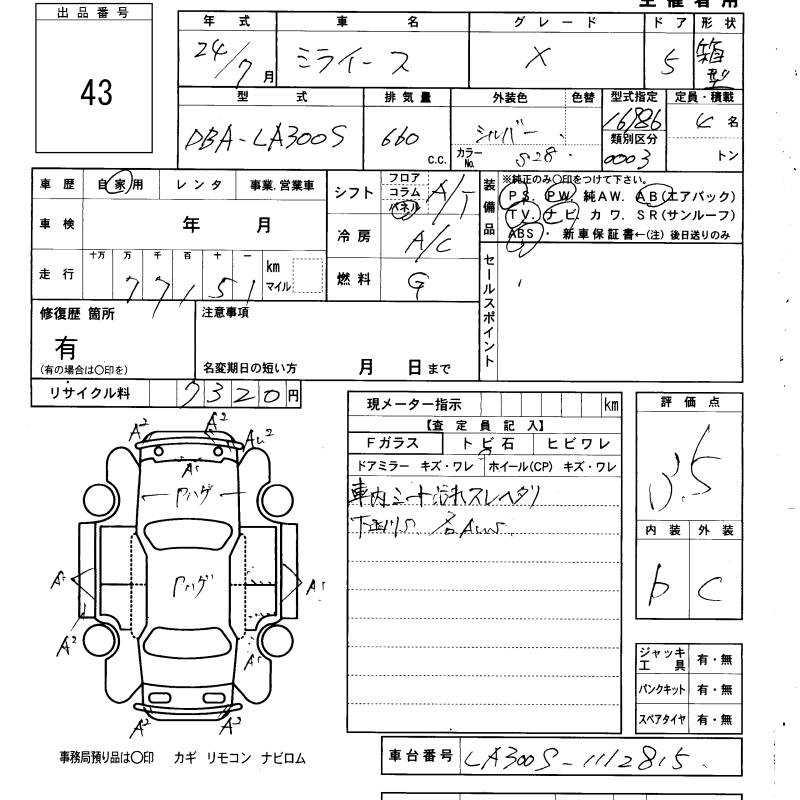 出品番号
43
年式 車名 グレード ドア 形状
24/7月 ミライース X 5 箱型
型式 排気量 外装色 色替 型式指定 定員・積載
DBA-LA300S 660 c.c. シルバー カラーNo. S28 16186 4名
類別区分
0003 トン
車歴 自家用 レンタ 事業.営業車
車検 年 月
走行 十万 万 千 百 十 一 km マイル
77151
シフト フロア コラム パネル A/T
冷房 A/C
燃料 G
装備品
※純正のみ〇印をつけて下さい。
PS. PW. 純AW. AB(エアバック)
TV. ナビ. カワ. SR(サンルーフ)
ABS・ 新車保証書←(注) 後日送りのみ
セールスポイント
修復歴 箇所
有
(有の場合は〇印を)
注意事項
名変期日の短い方 月 日まで
リサイクル料 7320円
現メーター指示 km
【査定員記入】
Fガラス トビ石 ヒビワレ
ドアミラー キズ・ワレ ホイール(CP) キズ・ワレ
車内シート汚れスレヘタリ
評価点
3.5
内装 外装
b C
A2 A2 AU2
A1
Pハゲ
Pハゲ
A1 A1
A2
A1
A2 A2
ジャッキ工具 有・無
パンクキット 有・無
スペアタイヤ 有・無
事務局預り品は〇印 カギ リモコン ナビロム
車台番号 LA300S-1112815.